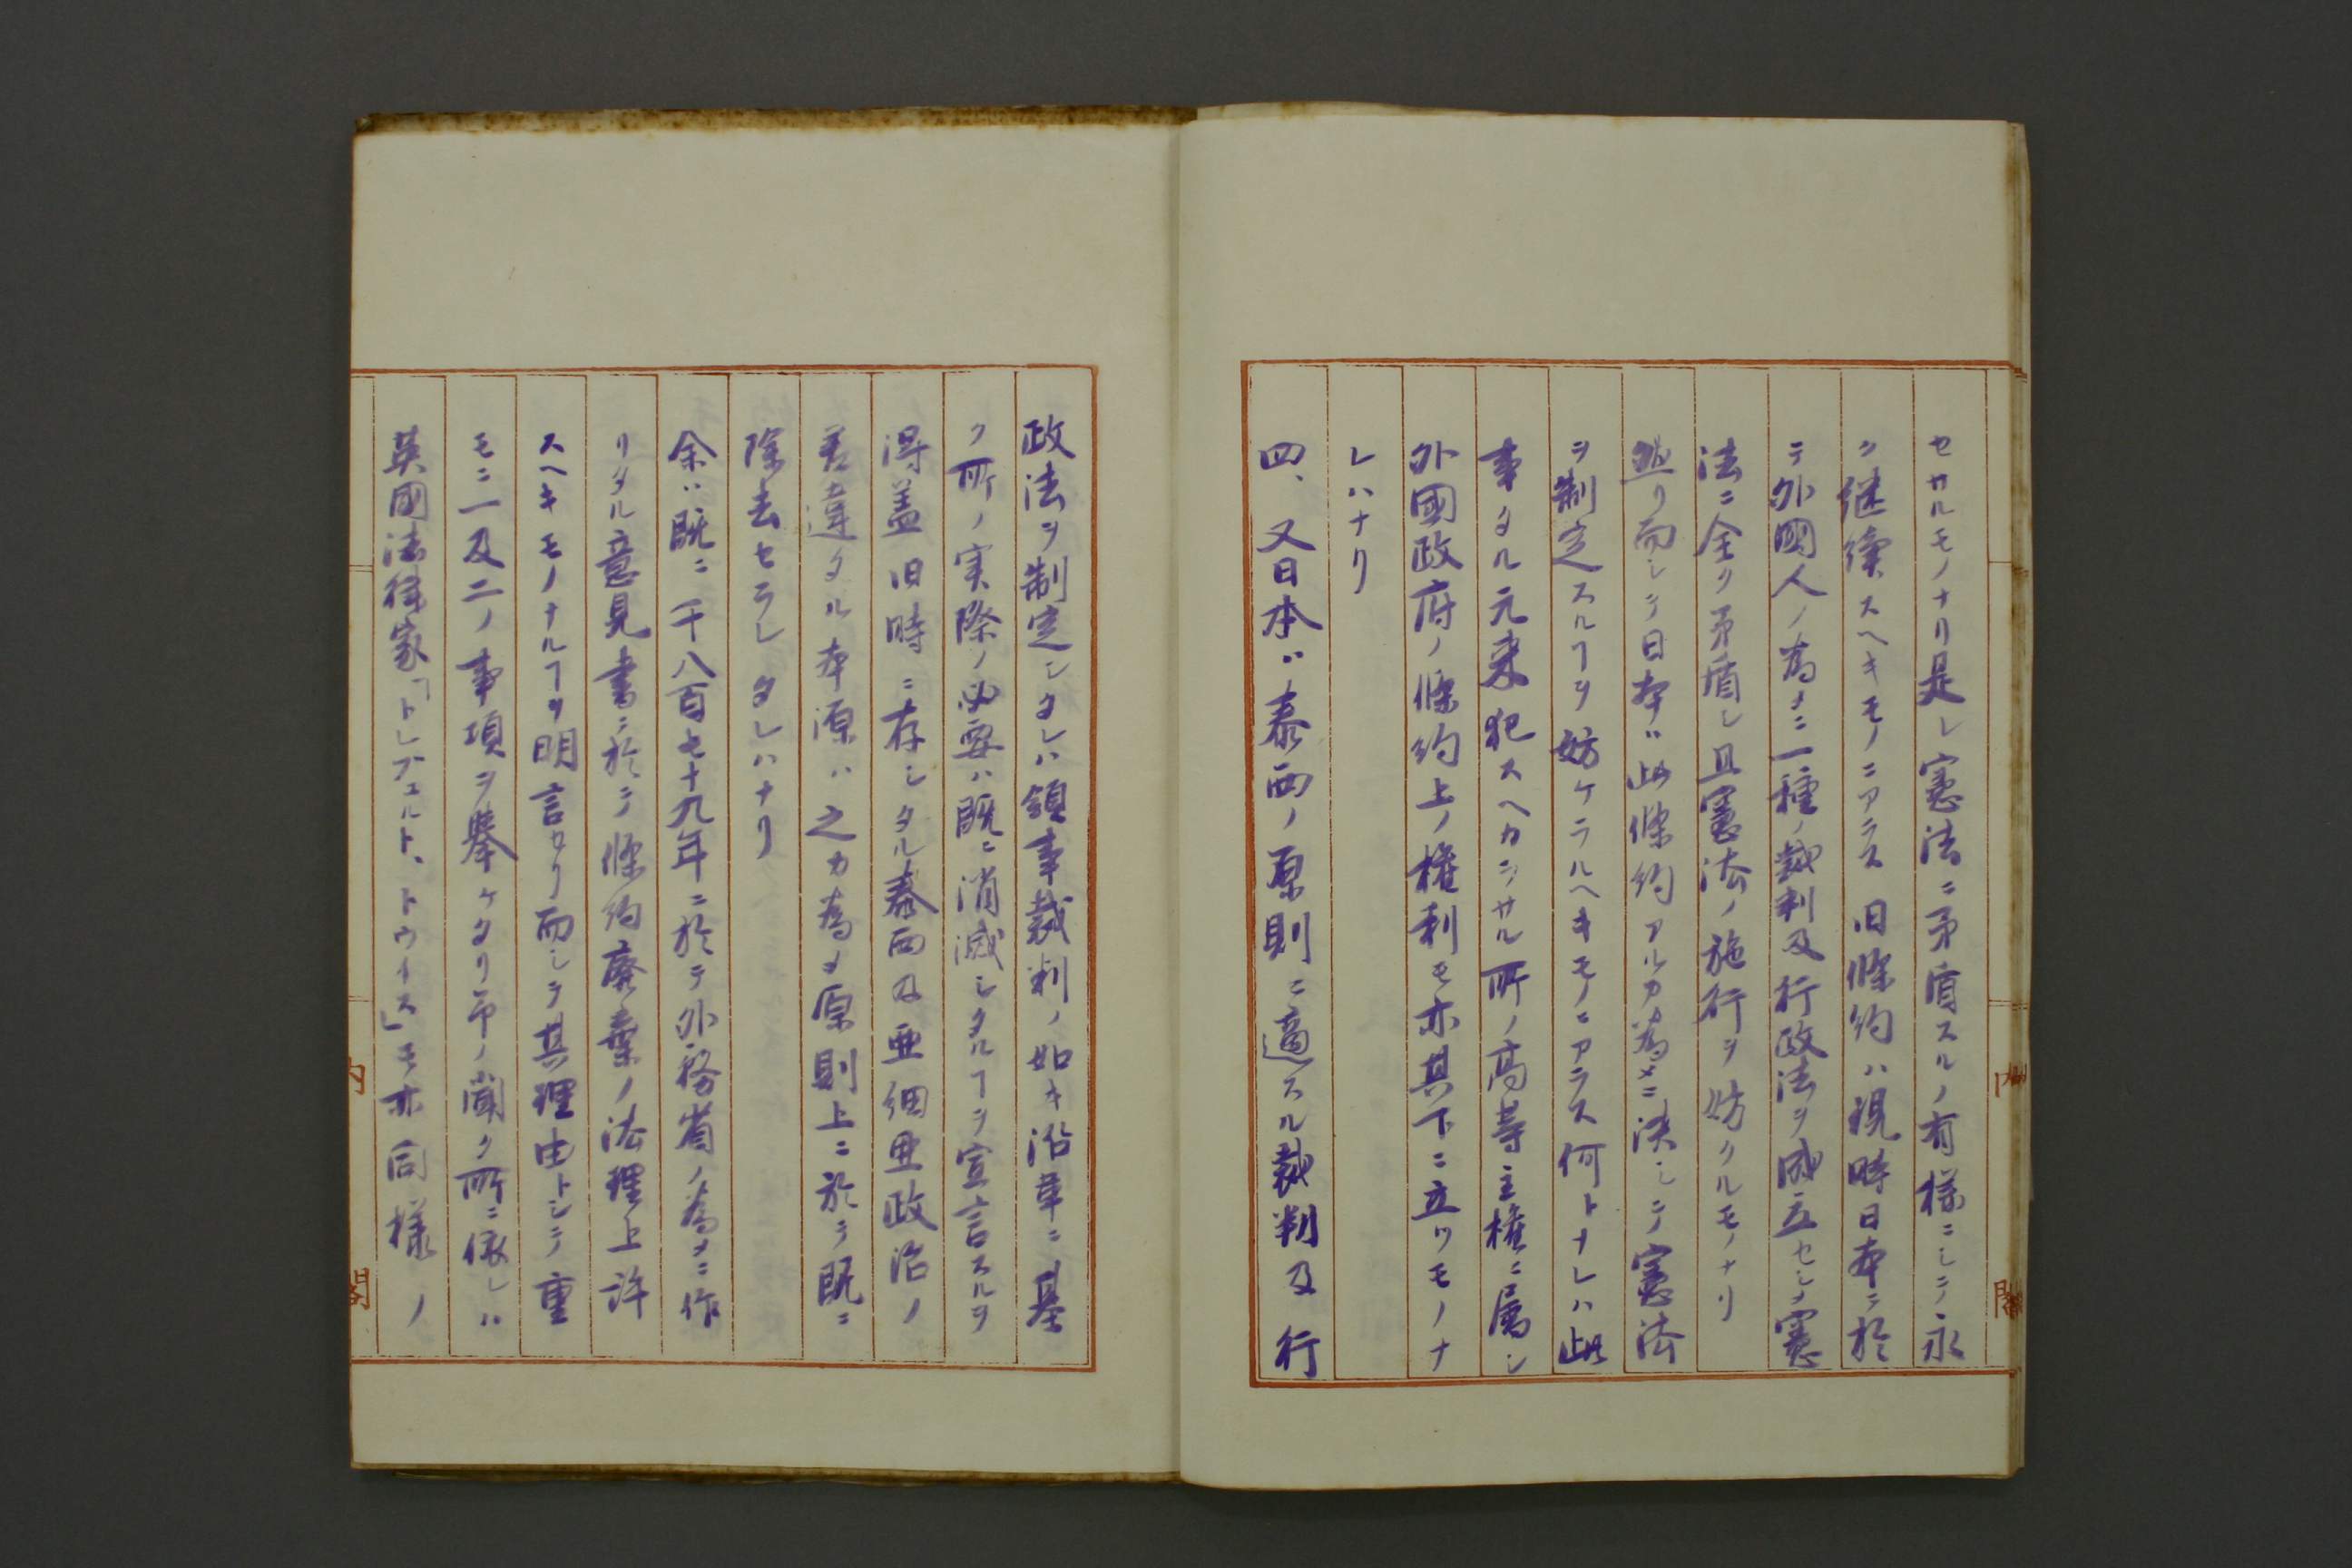 セサルモノナリ是レ憲法ニ矛盾スルノ有様ニシテ永
ク継續スヘキモノニアラス旧條約ハ現時日本ニ於
テ外國人ノ為メニ一種ノ裁判及行政法ヲ成立セシメ憲
法ニ全ク矛盾シ且憲法ノ施行ヲ妨クルモノナリ
然リ而シテ日本ハ此條約アルカ為メニ決シテ憲法
ヲ制定スルヿヲ妨ケラルヘキモノニアラス何トナレハ此
事タル元来犯スヘカラサル所ノ高等主権ニ属シ
外國政府ノ條約上ノ権利モ亦其下ニ立ツモノナ
レハナリ
四、又日本ハ泰西ノ原則ニ適スル裁判及行
政法ヲ制定シタレハ領事裁判ノ如キ沿革ニ基
ク所ノ実際ノ必要ハ既ニ消滅シタルヿヲ宣言スルヲ
得蓋旧時ニ存シタル泰西及亜細亜政治ノ
差違タル本源ハ之カ為メ原則上ニ於テ既ニ
除去セラレタレハナリ
余ハ既ニ千八百七十九年ニ於テ外務省ノ為メニ作
リタル意見書ニ於テ條約廃棄ノ法理上許
スヘキモノナルヿヲ明言セリ而シテ其理由トシテ重
モニ一及二ノ事項ヲ擧ケタリ余ノ聞ク所ニ依レハ
英國法律家「トレブェルト、トウイス」モ亦同様ノ
内閣
内閣